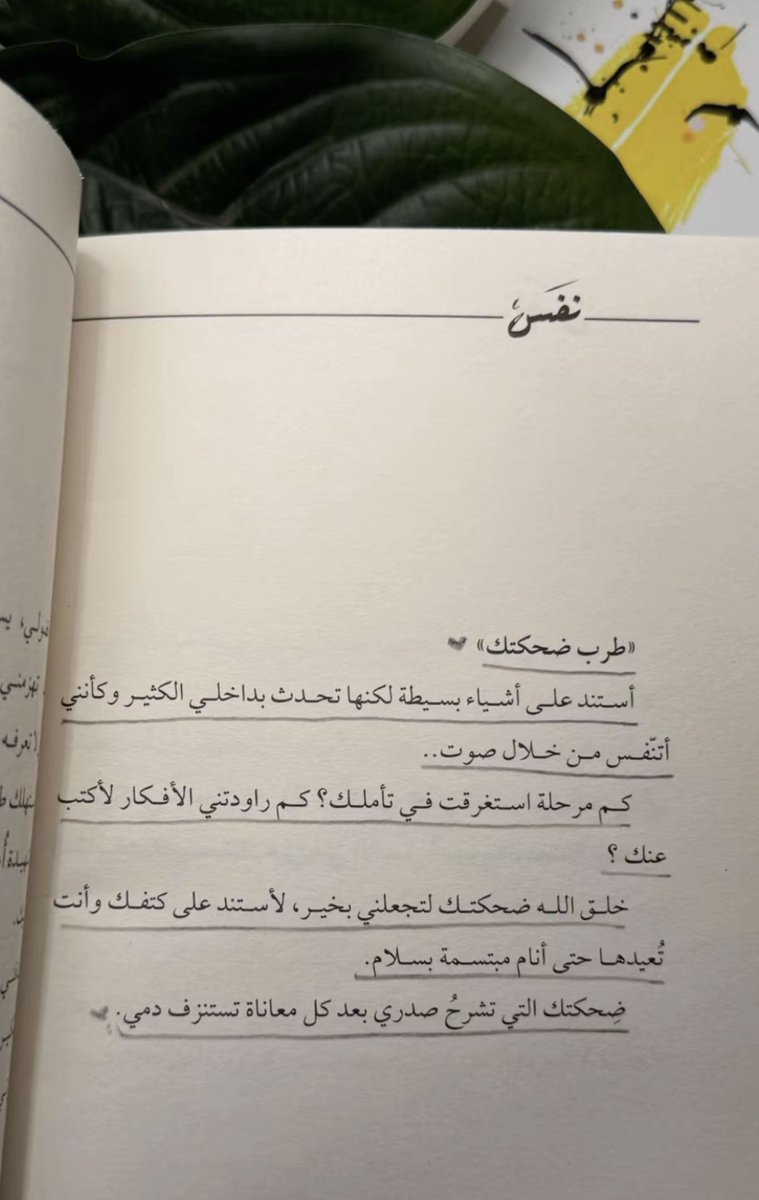 نفَس
«طرب ضحكتك»
أستند على أشياء بسيطة لكنها تحدث بداخلي الكثير وكأنني
أتنّفس من خلال صوت..
كم مرحلة استغرقت في تأملك؟ كم راودتني الأفكار لأكتب
عنك ؟
خلق الله ضحكتك لتجعلني بخير، لأستند على كتفك وأنت
تُعيدها حتى أنام مبتسمة بسلام.
ضِحكتك التي تشرحُ صدري بعد كل معاناة تستنزف دمي.